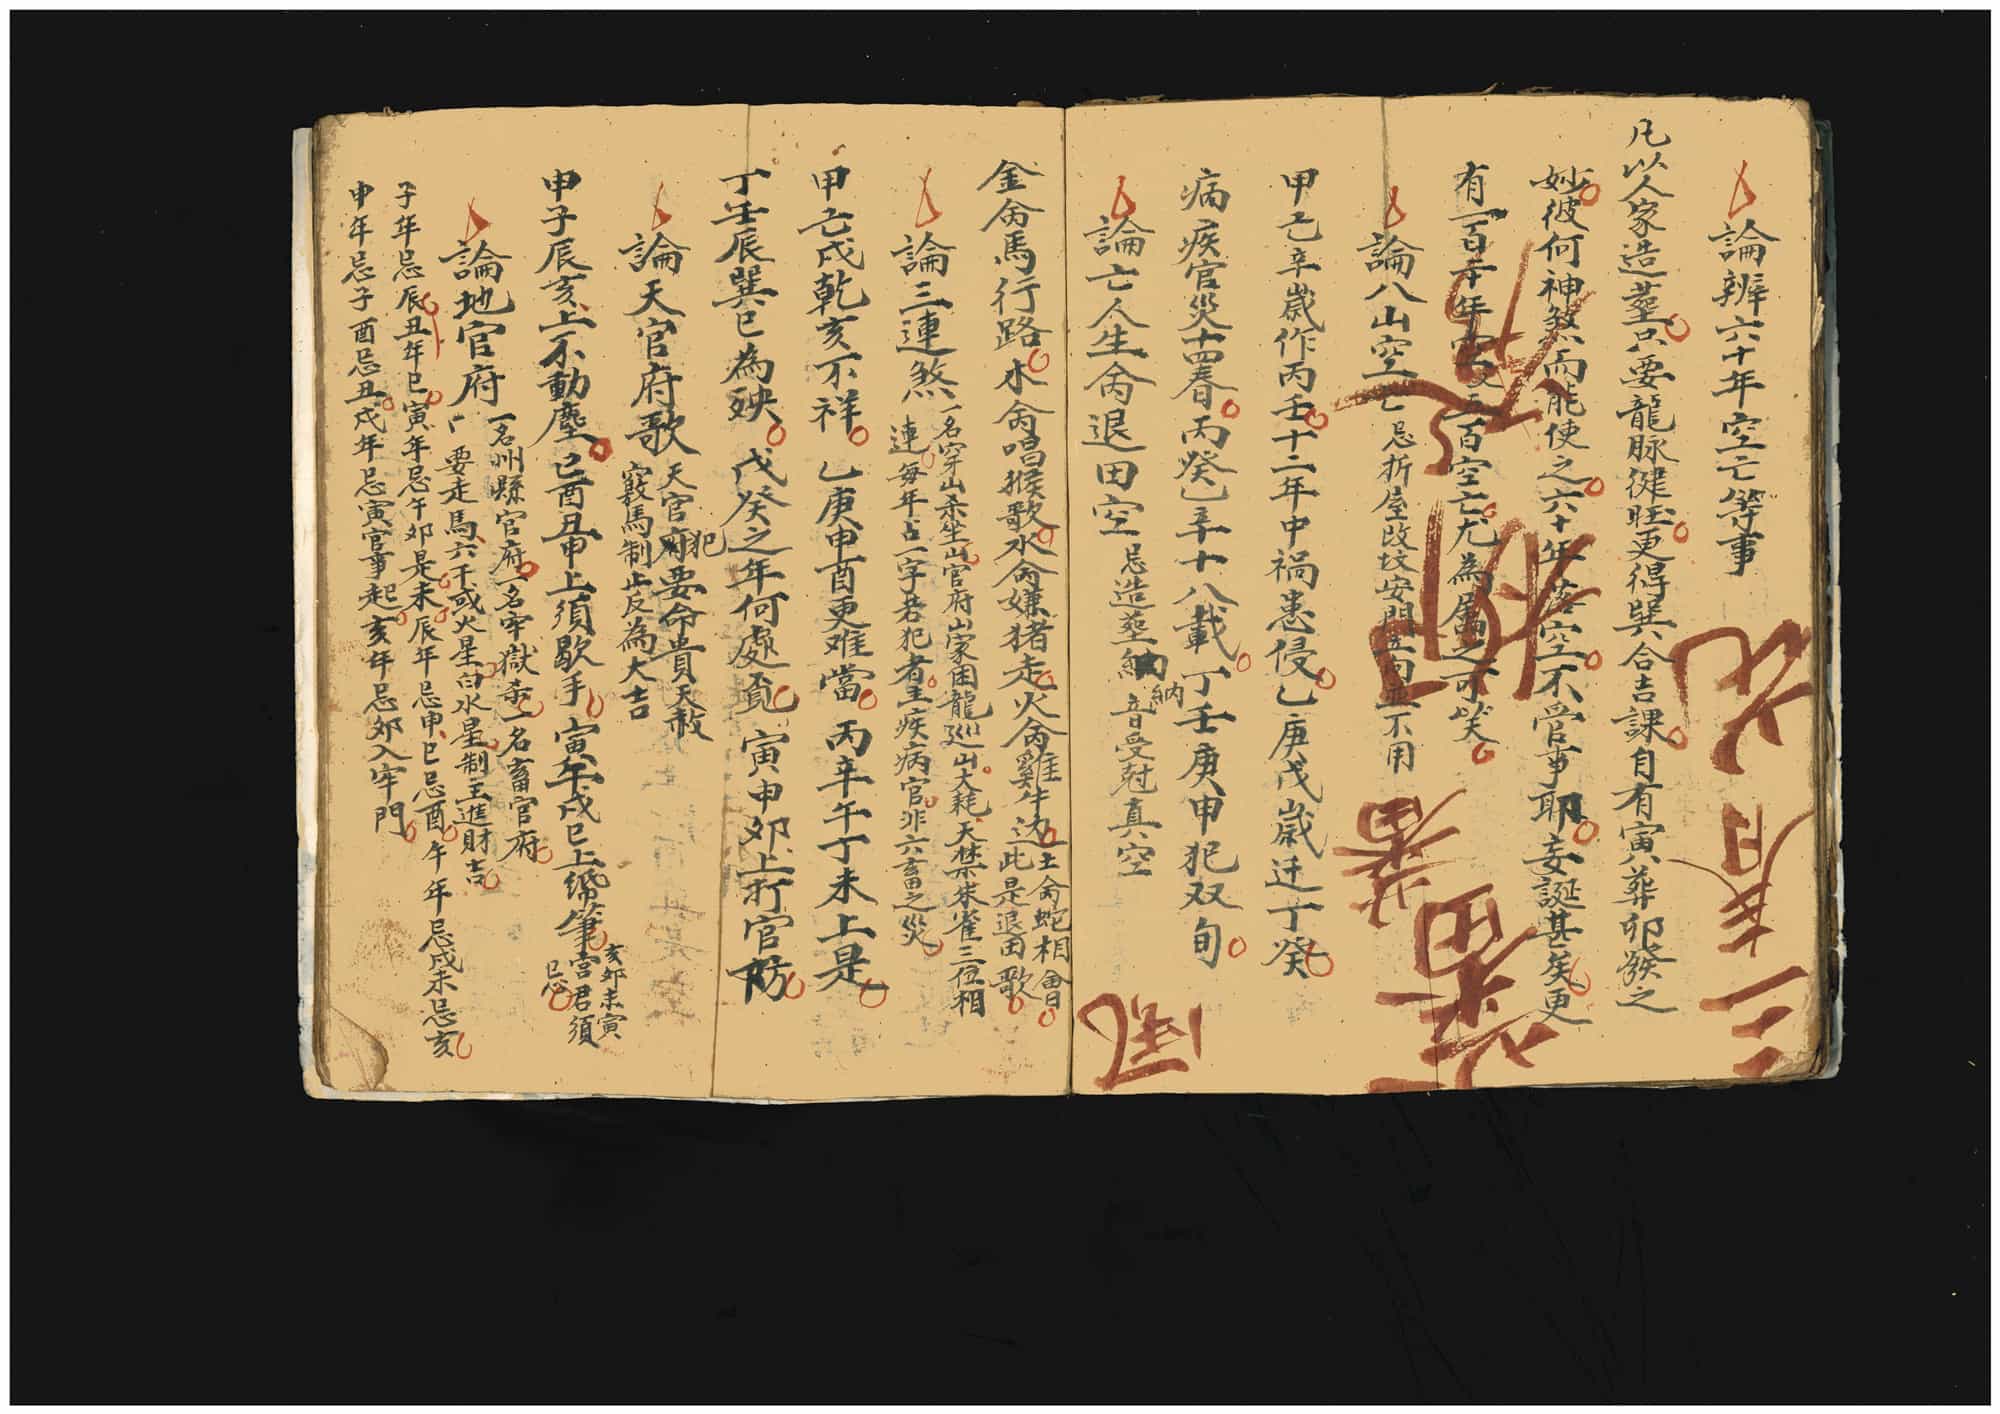 論辨六十年空亡等事
凡以人家造塟只要龍脉健旺更得巽合吉課自有寅葬卯發之
妙彼何神煞而能使之六十年落空不管事耶妄誕甚矣更
有一百二十年空亡五百空亡尤為屬之可笑
論八山空亡忌拆屋改坟安門並不用
甲己辛歲作丙壬十二年中禍患侵乙庚戊歲迁丁癸
病疾官災十四春丙癸乙辛十八載丁壬庚申犯双旬
論亡人生肖退田空
忌造塟納
音受尅真空
金肏馬行路水肏唱猴歌水肏嫌猪走火肏雞牛边
土肏蛇相會
此是退田歌
論三連煞
一名穿山杀坐山官府山家困龍巡山大耗天禁朱雀三位相
連每年占一字若犯者主疾病官非六畜之災
甲己戌乾亥不祥乙庚申酉更难當丙辛午丁未上是
丁壬辰巽巳為殃戊癸之年何處覓寅申卯上打官防
論天官府歌
天官犯府要命貴天赦
竅馬制止反為大吉
甲子辰亥上不動塵巳酉丑申上須歇手寅午戌巳上停筆宫君須忌
亥卯未寅
論地官府
一名州縣官府一名牢獄杀一名畜官府
要走馬六壬或火星白水星制主進財吉
子年忌辰丑年巳寅年忌午卯是未辰年忌申巳忌酉午年忌戌未忌亥
申年忌子酉忌丑戌年忌寅官事起亥年忌卯入牢門